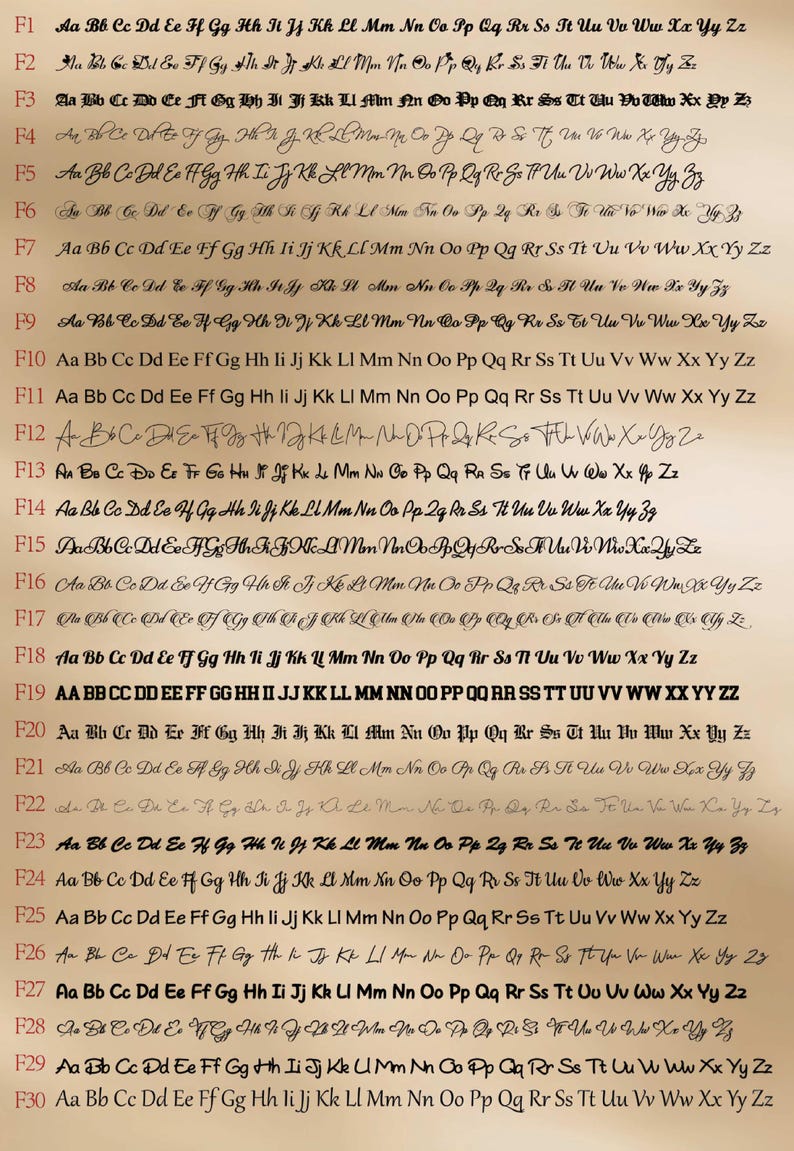 F1 Aa Bb Cc Dd Ee Ff Gg Hh Ii Jj Kk Ll Mm Nn Oo Pp Qq Rr Ss Tt Uu Vv Ww Xx Yy Zz
F2 Aa Bb Cc Dd Ee Ff Gg Hh Ii Jj Kk Ll Mm Nn Oo Pp Qq Rr Ss Tt Uu Vv Ww Xx Yy Zz
F3 Aa Bb Cc Dd Ee Ff Gg Hh Ii Jj Kk Ll Mm Nn Oo Pp Qq Rr Ss Tt Uu Vv Ww Xx Yy Zz
F4 Aa Bb Cc Dd Ee Ff Gg Hh Ii Jj Kk Ll Mm Nn Oo Pp Qq Rr Ss Tt Uu Vv Ww Xx Yy Zz
F5 Aa Bb Cc Dd Ee Ff Gg Hh Ii Jj Kk Ll Mm Nn Oo Pp Qq Rr Ss Tt Uu Vv Ww Xx Yy Zz
F6 Aa Bb Cc Dd Ee Ff Gg Hh Ii Jj Kk Ll Mm Nn Oo Pp Qq Rr Ss Tt Uu Vv Ww Xx Yy Zz
F7 Aa Bb Cc Dd Ee Ff Gg Hh Ii Jj Kk Ll Mm Nn Oo Pp Qq Rr Ss Tt Uu Vv Ww Xx Yy Zz
F8 Aa Bb Cc Dd Ee Ff Gg Hh Ii Jj Kk Ll Mm Nn Oo Pp Qq Rr Ss Tt Uu Vv Ww Xx Yy Zz
F9 Aa Bb Cc Dd Ee Ff Gg Hh Ii Jj Kk Ll Mm Nn Oo Pp Qq Rr Ss Tt Uu Vv Ww Xx Yy Zz
F10 Aa Bb Cc Dd Ee Ff Gg Hh Ii Jj Kk Ll Mm Nn Oo Pp Qq Rr Ss Tt Uu Vv Ww Xx Yy Zz
F11 Aa Bb Cc Dd Ee Ff Gg Hh Ii Jj Kk Ll Mm Nn Oo Pp Qq Rr Ss Tt Uu Vv Ww Xx Yy Zz
F12 Aa Bb Cc Dd Ee Ff Gg Hh Ii Jj Kk Ll Mm Nn Oo Pp Qq Rr Ss Tt Uu Vv Ww Xx Yy Zz
F13 Aa Bb Cc Dd Ee Ff Gg Hh Ii Jj Kk Ll Mm Nn Oo Pp Qq Rr Ss Tt Uu Vv Ww Xx Yy Zz
F14 Aa Bb Cc Dd Ee Ff Gg Hh Ii Jj Kk Ll Mm Nn Oo Pp Qq Rr Ss Tt Uu Vv Ww Xx Yy Zz
F15 Aa Bb Cc Dd Ee Ff Gg Hh Ii Jj Kk Ll Mm Nn Oo Pp Qq Rr Ss Tt Uu Vv Ww Xx Yy Zz
F16 Aa Bb Cc Dd Ee Ff Gg Hh Ii Jj Kk Ll Mm Nn Oo Pp Qq Rr Ss Tt Uu Vv Ww Xx Yy Zz
F17 Aa Bb Cc Dd Ee Ff Gg Hh Ii Jj Kk Ll Mm Nn Oo Pp Qq Rr Ss Tt Uu Vv Ww Xx Yy Zz
F18 Aa Bb Cc Dd Ee Ff Gg Hh Ii Jj Kk Ll Mm Nn Oo Pp Qq Rr Ss Tt Uu Vv Ww Xx Yy Zz
F19 AA BB CC DD EE FF GG HH II JJ KK LL MM NN OO PP QQ RR SS TT UU VV WW XX YY ZZ
F20 Aa Bb Cc Dd Ee Ff Gg Hh Ii Jj Kk Ll Mm Nn Oo Pp Qq Rr Ss Tt Uu Vv Ww Xx Yy Zz
F21 Aa Bb Cc Dd Ee Ff Gg Hh Ii Jj Kk Ll Mm Nn Oo Pp Qq Rr Ss Tt Uu Vv Ww Xx Yy Zz
F22 Aa Bb Cc Dd Ee Ff Gg Hh Ii Jj Kk Ll Mm Nn Oo Pp Qq Rr Ss Tt Uu Vv Ww Xx Yy Zz
F23 Aa Bb Cc Dd Ee Ff Gg Hh Ii Jj Kk Ll Mm Nn Oo Pp Qq Rr Ss Tt Uu Vv Ww Xx Yy Zz
F24 Aa Bb Cc Dd Ee Ff Gg Hh Ii Jj Kk Ll Mm Nn Oo Pp Qq Rr Ss Tt Uu Vv Ww Xx Yy Zz
F25 Aa Bb Cc Dd Ee Ff Gg Hh Ii Jj Kk Ll Mm Nn Oo Pp Qq Rr Ss Tt Uu Vv Ww Xx Yy Zz
F26 Aa Bb Cc Dd Ee Ff Gg Hh Ii Jj Kk Ll Mm Nn Oo Pp Qq Rr Ss Tt Uu Vv Ww Xx Yy Zz
F27 Aa Bb Cc Dd Ee Ff Gg Hh Ii Jj Kk Ll Mm Nn Oo Pp Qq Rr Ss Tt Uu Vv Ww Xx Yy Zz
F28 Aa Bb Cc Dd Ee Ff Gg Hh Ii Jj Kk Ll Mm Nn Oo Pp Qq Rr Ss Tt Uu Vv Ww Xx Yy Zz
F29 Aa Bb Cc Dd Ee Ff Gg Hh Ii Jj Kk Ll Mm Nn Oo Pp Qq Rr Ss Tt Uu Vv Ww Xx Yy Zz
F30 Aa Bb Cc Dd Ee Ff Gg Hh Ii Jj Kk Ll Mm Nn Oo Pp Qq Rr Ss Tt Uu Vv Ww Xx Yy Zz